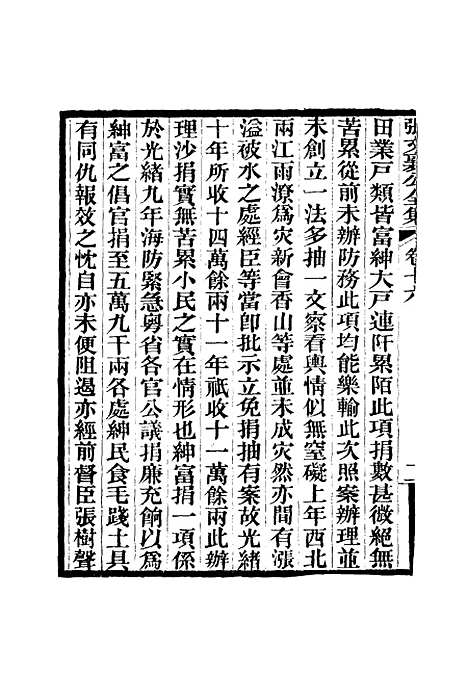 張文襄公全集 卷十六
田業戸類皆富紳大戸連阡累陌此項捐數甚微絕無
苦累從前未辦防務此項均能樂輸此次照案辦理並
未創立一法多抽一文察看輿情似無窒礙上年西北
兩江雨潦爲灾新會香山等處並未成灾然亦間有漲
溢被水之處經臣等當卽批示立免捐抽有案故光緒
十年所收十四萬餘兩十一年祇收十一萬餘兩此辦
理沙捐實無苦累小民之實在情形也紳富捐一項係
於光緒九年海防緊急粵省各官公議捐廉充餉以爲
紳富之倡官捐至五萬九千兩各處紳民食毛踐土具
有同仇報效之忱自亦未便阻遏亦經前督臣張樹聲